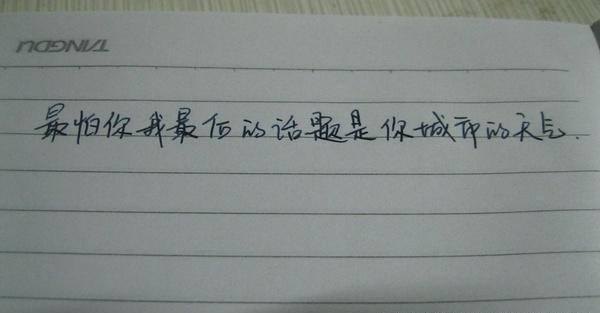 TANGDU
最怕你我最后的话题是你城市的天气.